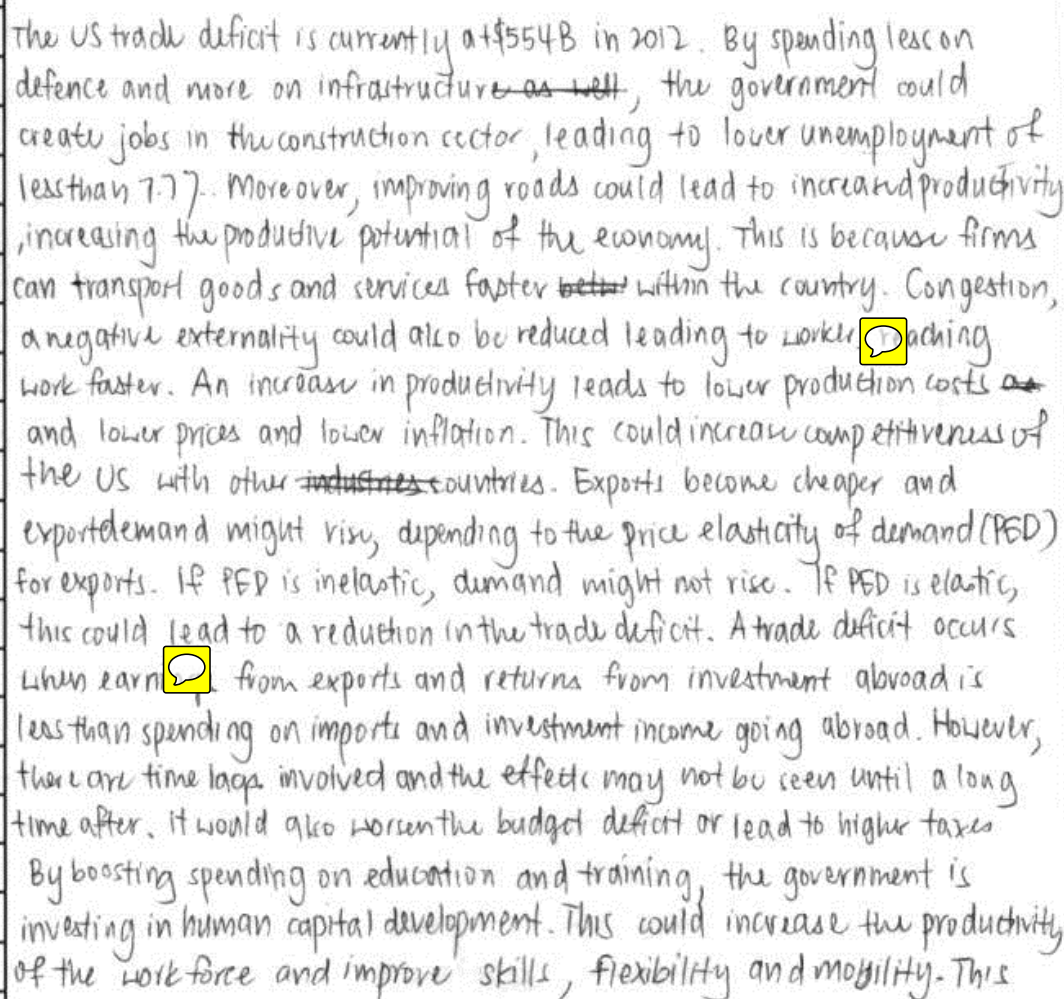 The US trade deficit is currently at $554B in 2012. By spending less on
defence and more on infrastructure as well, the government could
create jobs in the construction sector, leading to lower unemployment of
less than 7.7%. Moreover, improving roads could lead to increased productivity
, increasing the productive potential of the economy. This is because firms
can transport goods and services faster within the country. Congestion,
a negative externality could also be reduced leading to worker
work faster. An increase in productivity leads to lower production costs as
and lower prices and lower inflation. This could increase competitiveness of
the US with other industries countries. Exports become cheaper and
export demand might rise, depending to the price elasticity of demand (PED)
for exports. If PED is inelastic, demand might not rise. If PED is elastic,
this could lead to a reduction in the trade deficit. A trade deficit occurs
when from exports and returns from investment abroad is
less than spending on imports and investment income going abroad. However,
there are time lags involved and the effects may not be seen until a long
time after. it would also worsen the budget deficit or lead to higher taxes
By boosting spending on education and training, the government is
investing in human capital development. This could increase the productivity
of the workforce and improve skills, flexibility and mobility. This